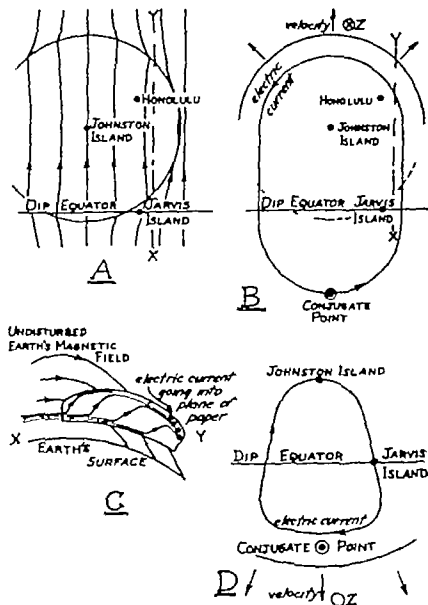 Y
HONOLULU
JOHNSTON
ISLAND
DIP EQUATOR JARVIS
ISLAND
X
A
velocity ⊗Z
Y
electric
current
HONOLULU
JOHNSTON
ISLAND
DIP EQUATOR JARVIS
ISLAND
X
B
CONJUGATE
POINT
UNDISTURBED
EARTH'S MAGNETIC
FIELD
electric current
going into
plane of
paper
X
Y
EARTH'S
SURFACE
C
JOHNSTON ISLAND
DIP EQUATOR JARVIS
ISLAND
electric current
CONJUGATE POINT
D
velocity OZ